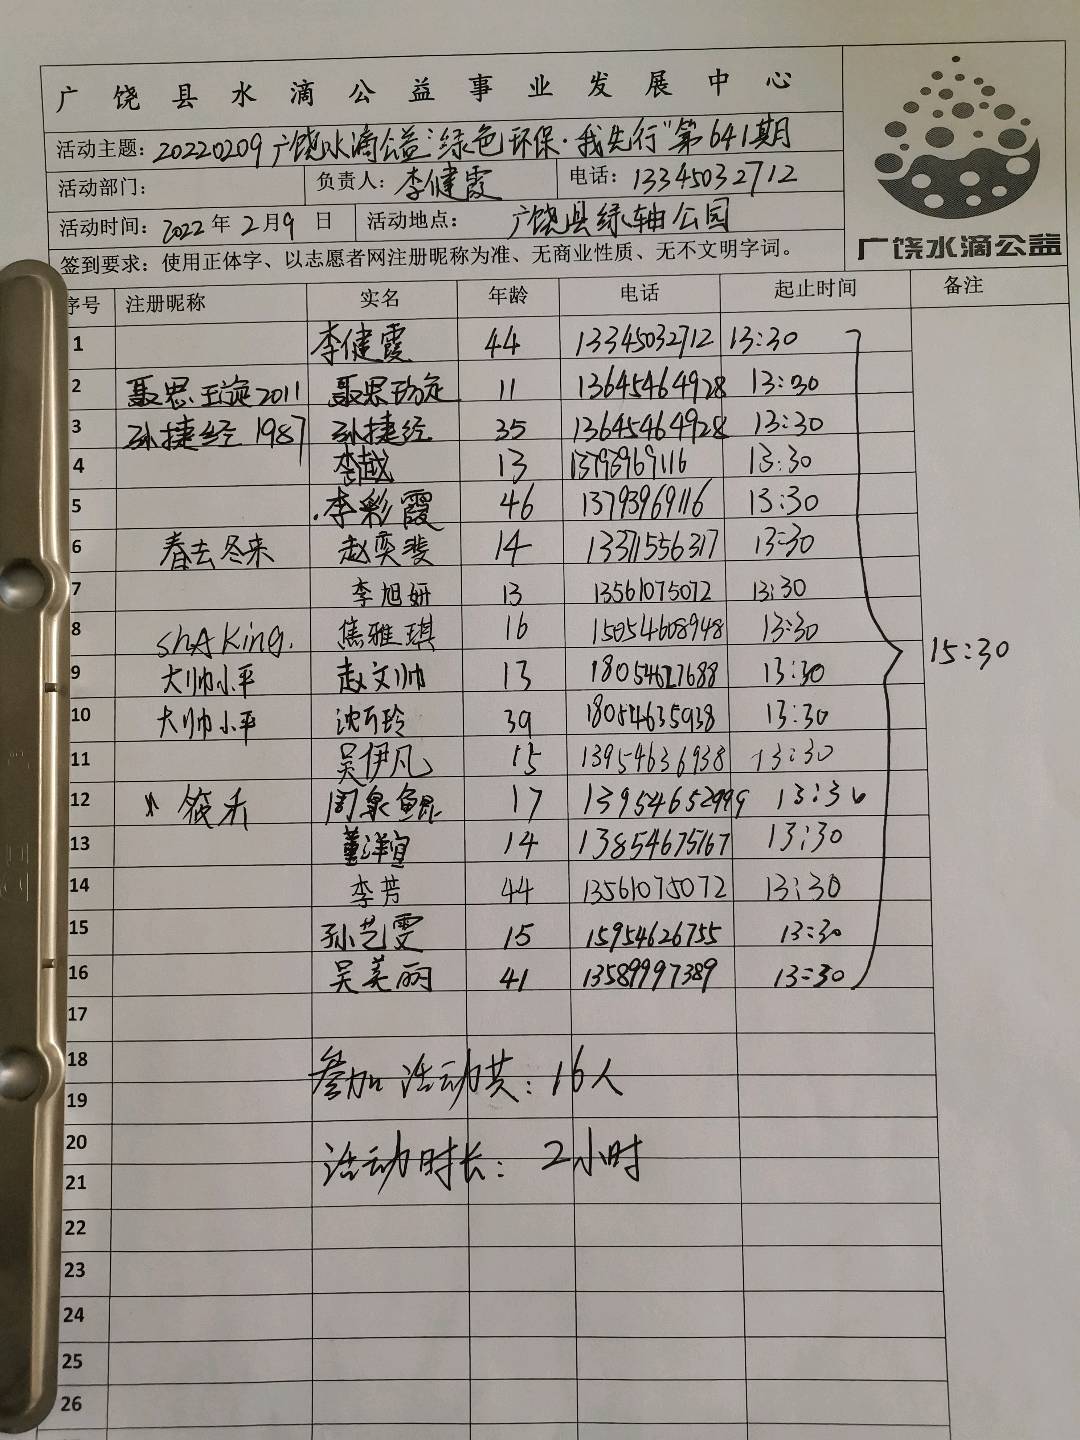 广饶县水滴公益事业发展中心
活动主题：20220209广饶水滴公益"绿色环保·我先行"第641期
活动部门： 负责人：李健霞 电话：13345032712
活动时间：2022年2月9日 活动地点：广饶县绿轴公园
广饶水滴公益
签到要求：使用正体字、以志愿者网注册昵称为准、无商业性质、无不文明字词。
序号 注册昵称 实名 年龄 电话 起止时间 备注
1 李健霞 44 13345032712 13:30
2 聂思珏旋2011 聂思 11 13645464928 13:30
3 孙捷经1987 孙捷经 35 13645464928 13:30
4 李越 13 13793969116 13:30
5 李彩霞 46 13793969116 13:30
6 春去冬来 赵奕斐 14 13371556317 13:30
7 李旭妍 13 13561075072 13:30
8 shAking. 焦雅琪 16 15054608948 13:30
15:30
9 大帅小平 赵文帅 13 18054627688 13:30
10 大帅小平 沈万玲 39 18054635938 13:30
11 吴伊凡 15 13954636938 13:30
12 筱禾 周泉鲲 17 13954652999 13:30
13 董洋宜 14 13854675767 13:30
14 李芳 44 13561075072 13:30
15 孙艺雯 15 15954626755 13:30
16 吴美丽 41 13589997389 13:30
17
18
参加活动共：16人
19
20
活动时长：2小时
21
22
23
24
25
26